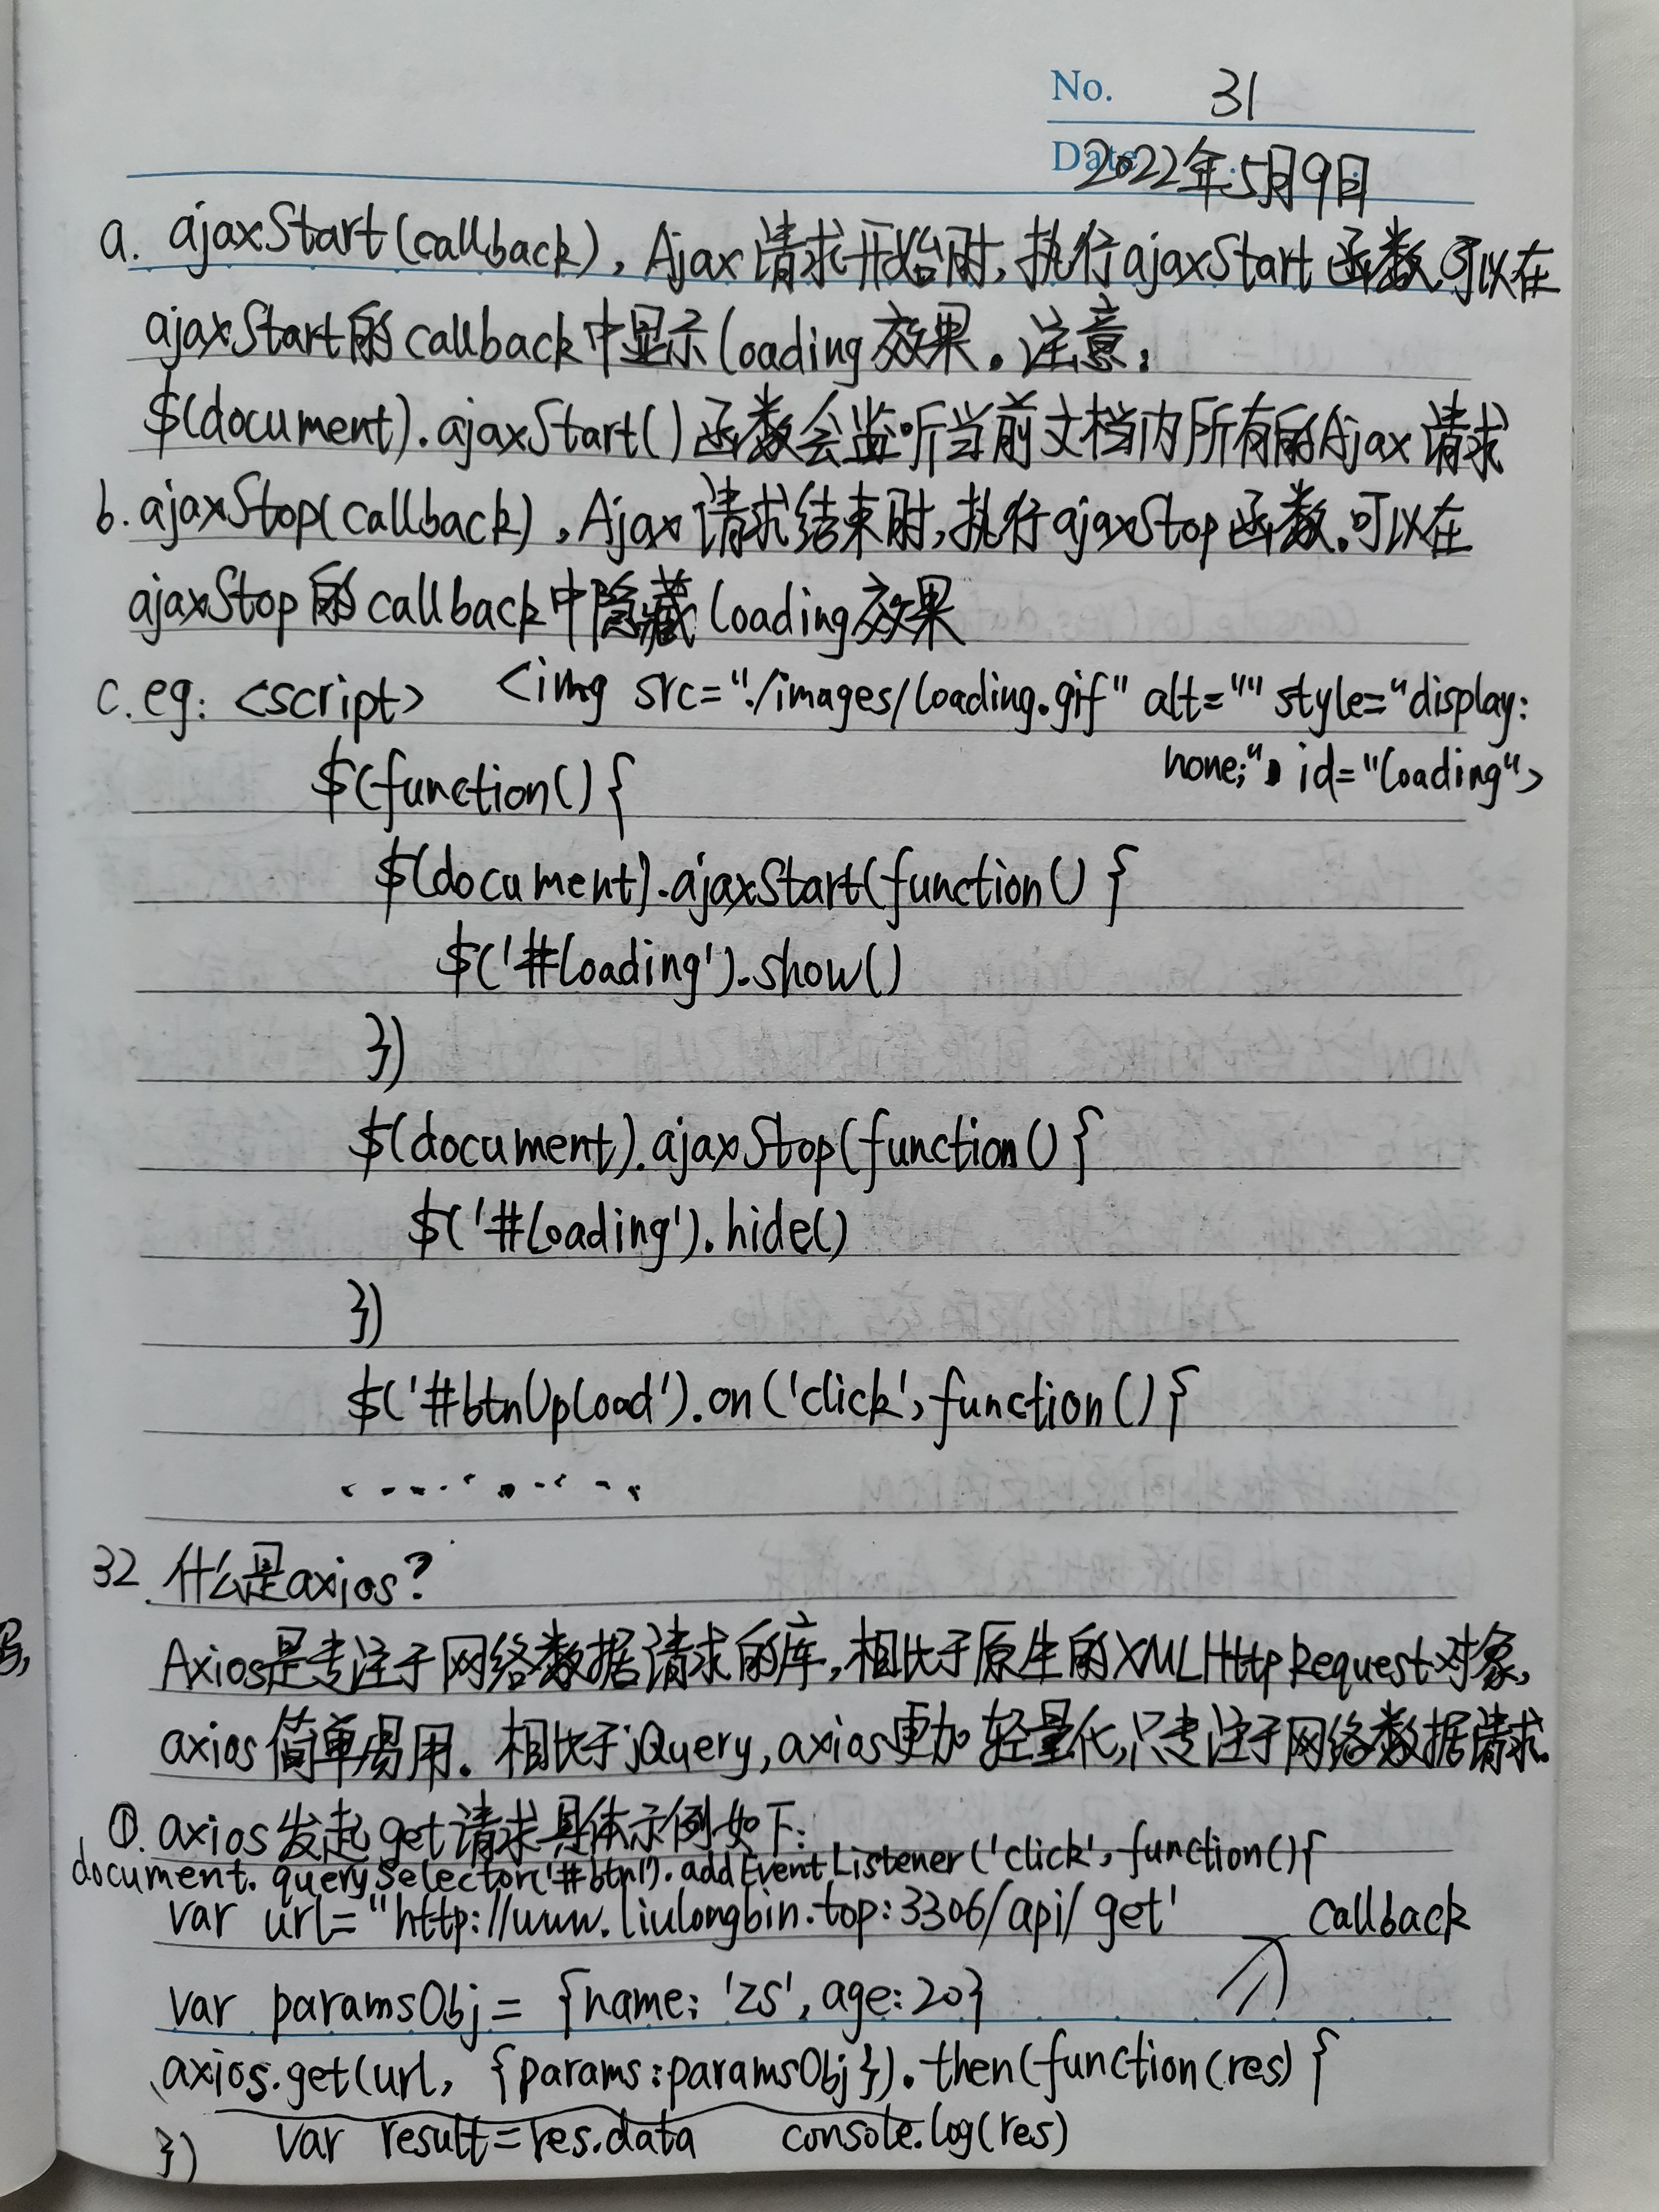 No. 31
Date 2022年5月9日
a. ajaxStart(callback), Ajax请求开始时,执行ajaxStart函数,可以在
ajaxStart的callback中显示loading效果。注意:
$(document).ajaxStart()函数会监听当前文档内所有的Ajax请求
b. ajaxStop(callback),Ajax请求结束时,执行ajaxStop函数,可以在
ajaxStop的callback中隐藏loading效果
c. eg: <script> <img src="./images/loading.gif" alt="" style="display:
none;" id="loading">
$(function(){
$(document).ajaxStart(function(){
$('#loading').show()
})
$(document).ajaxStop(function(){
$('#loading').hide()
})
$('#btnUpload').on('click',function(){
..........
32.什么是axios?
Axios是专注于网络数据请求的库,相比于原生的XMLHttpRequest对象,
axios简单易用。相比于jQuery,axios更加轻量化,只专注于网络数据请求。
①.axios发起get请求具体示例如下:
document.querySelector('#btn1').addEventListener('click',function(){
var url="http://www.liulongbin.top:3306/api/get' callback
var paramsObj = {name:'zs',age:20}
axios.get(url, {params:paramsObj}).then(function(res){
}) var result=res.data console.log(res)